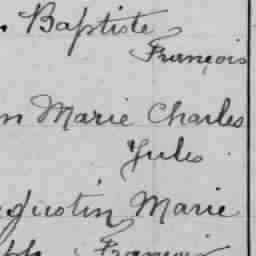 . Baptiste
François
n Marie Charles
Jules
gustin Marie
ph François